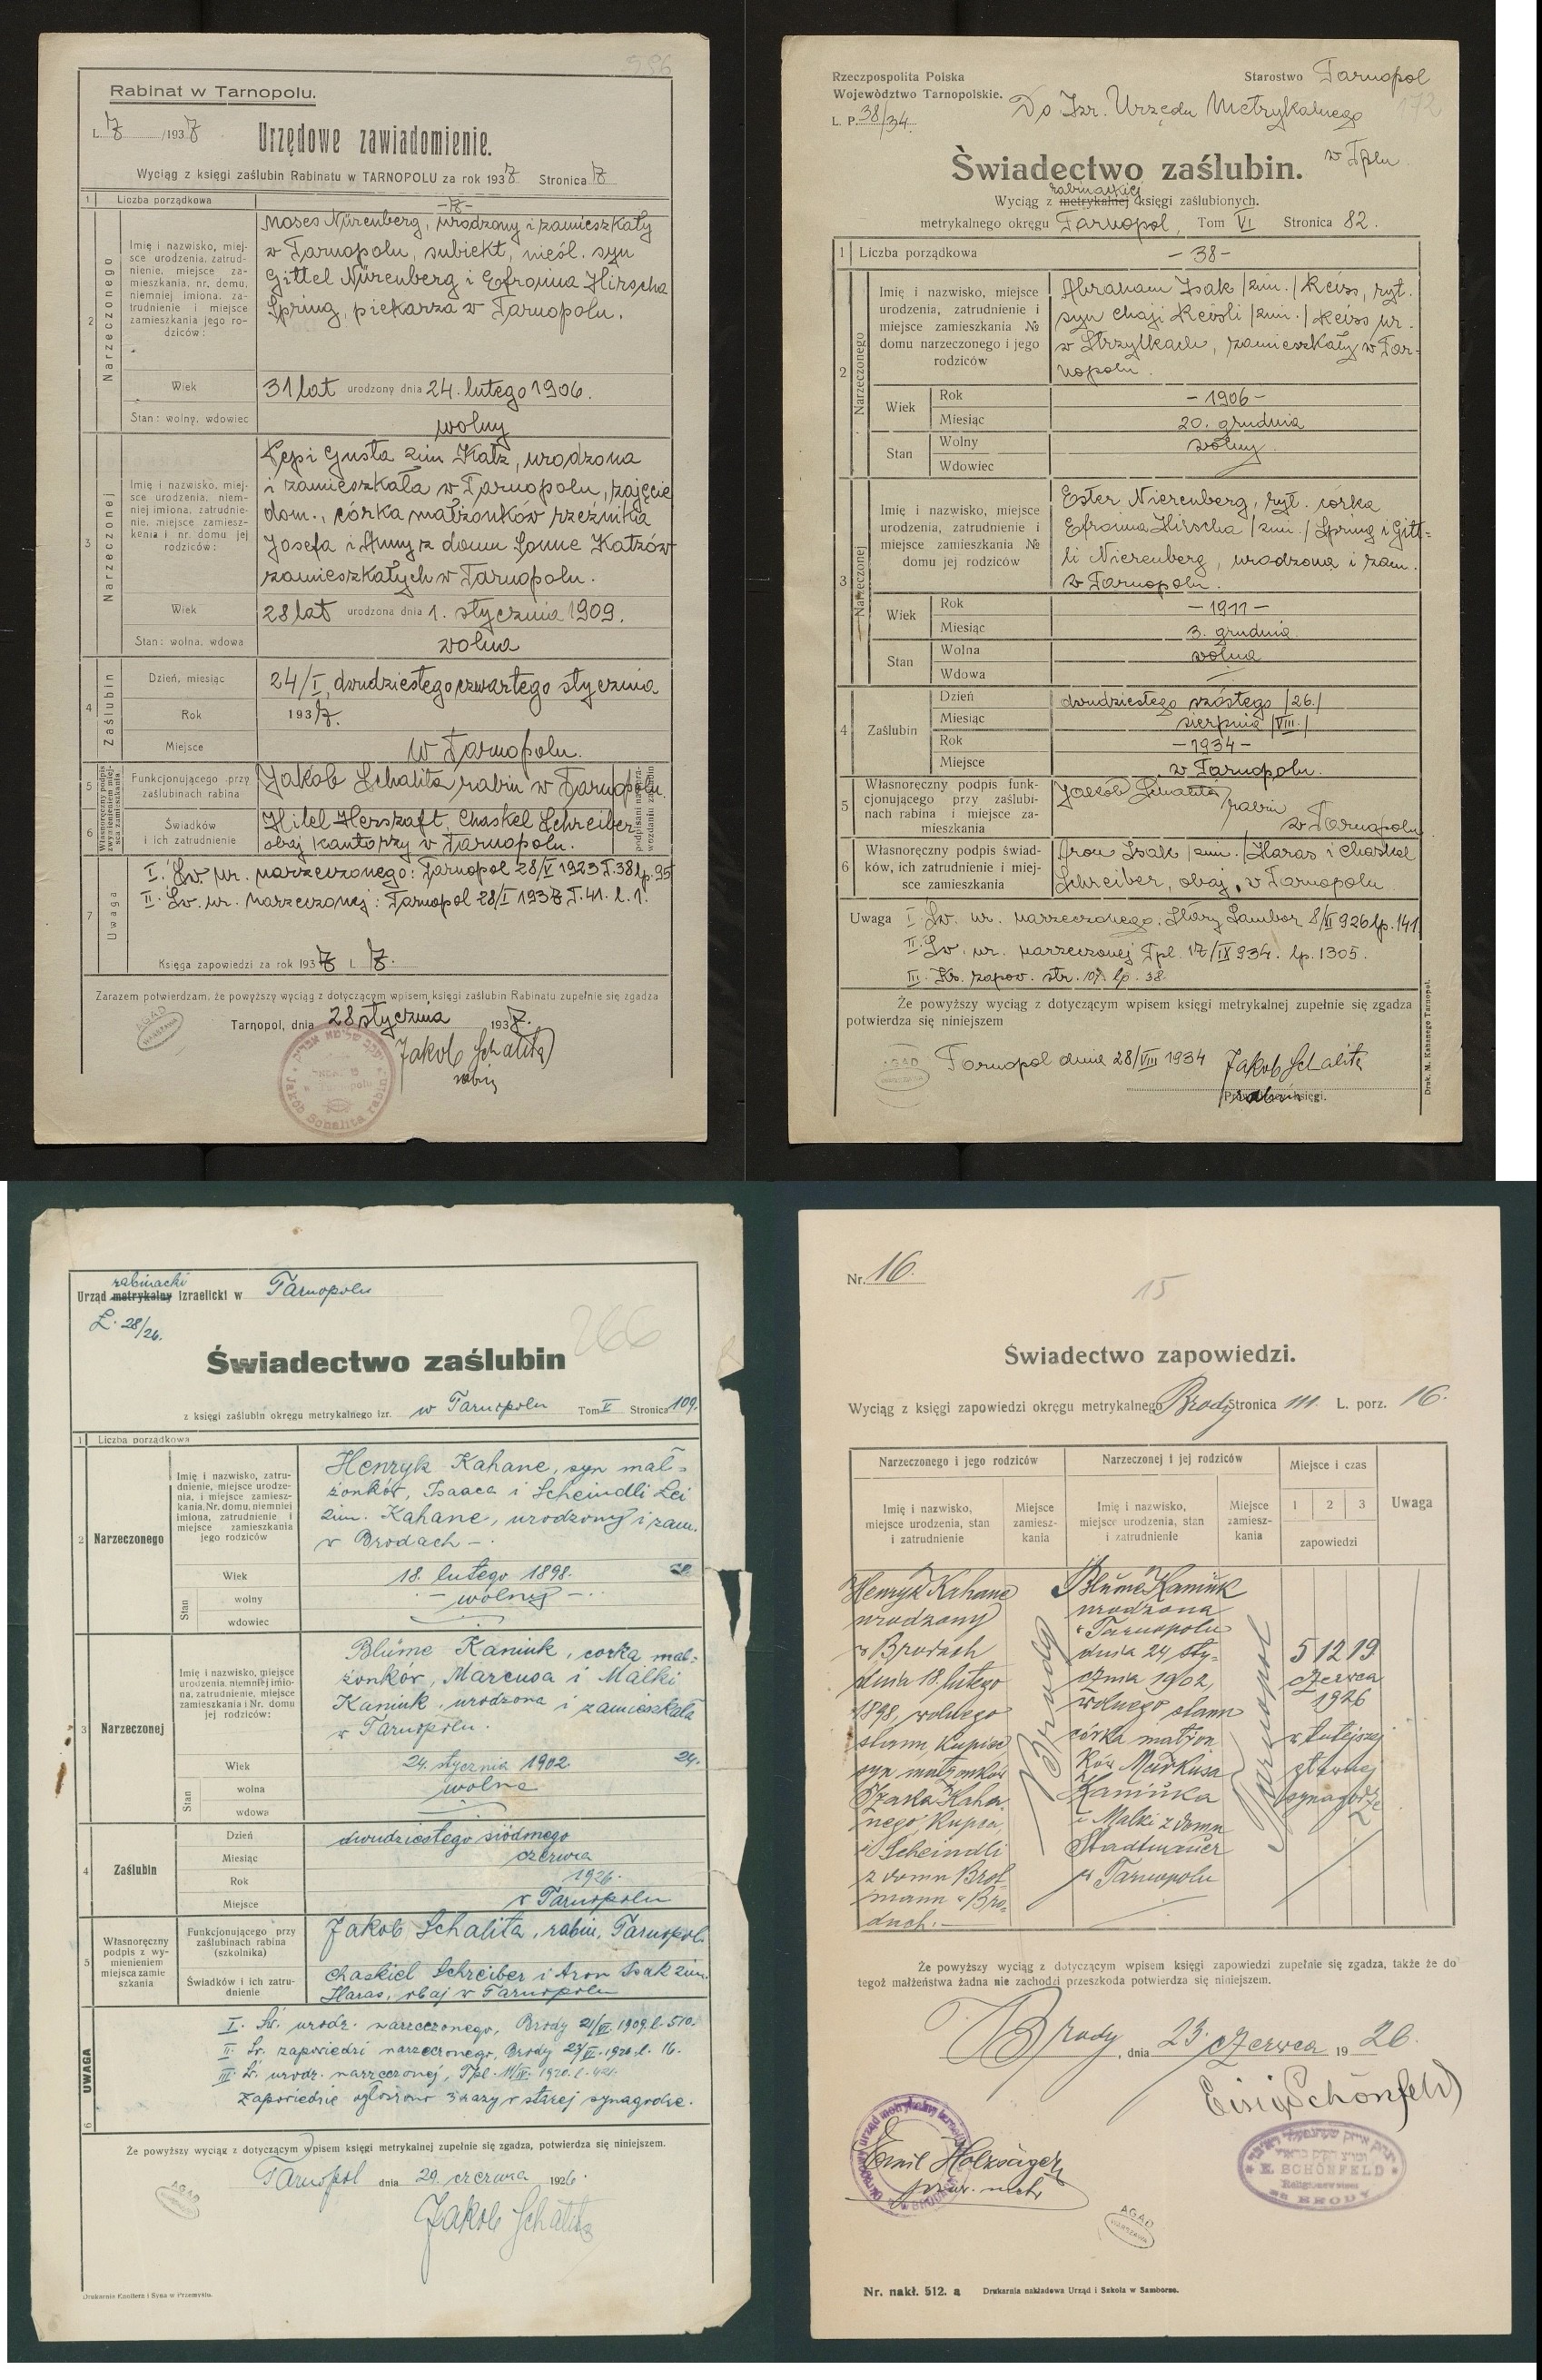 996
Rabinat w Tarnopolu.
L. 7 /1937
Urzędowe zawiadomienie.
Wyciąg z księgi zaślubin Rabinatu w TARNOPOLU za rok 1937 Stronica 7
1 Liczba porządkowa -7-
2 Narzeczonego
Imię i nazwisko, miej-
sce urodzenia, zatrud-
nienie, miejsce za-
mieszkania, nr. domu,
niemniej imiona, za-
trudnienie i miejsce
zamieszkania jego ro-
dziców:
Moses Nürenberg, urodzony i zamieszkały
w Tarnopolu, subiekt, nieśl. syn
Gittel Nürenberg i Efroima Hirscha
Spring, piekarza w Tarnopolu.
Wiek 31 lat urodzony dnia 24. lutego 1906.
Stan: wolny, wdowiec wolny
3 Narzeczonej
Imię i nazwisko, miej-
sce urodzenia, niem-
niej imiona, zatrudnie-
nie, miejsce zamiesz-
kania i nr. domu jej
rodziców:
Pepi Gusta 2im Katz, urodzona
i zamieszkała w Tarnopolu, zajęcie
dom., córka małżonków rzeźnika
Josefa i Anny z domu Sonne Katzów
zamieszkałych w Tarnopolu.
Wiek 28 lat urodzona dnia 1. stycznia 1909.
Stan: wolna, wdowa wolna
4 Zaślubin
Dzień, miesiąc 24/I, dwudziestego czwartego stycznia
Rok 1937.
Miejsce w Tarnopolu.
5 Funkcjonującego przy
zaślubinach rabina
Jakob Schalita rabin w Tarnopolu.
6 Świadków
i ich zatrudnienie
Hilel Herszaft, Chaskel Schreiber
obaj kantorzy w Tarnopolu.
7 Uwaga
I. Św. ur. narzeczonego: Tarnopol 28/V 1923 T.38 lp.95
II. Św. ur. narzeczonej: Tarnopol 28/I 1937 T.41. l. 1.
Księga zapowiedzi za rok 1937 l. 7.
Zarazem potwierdzam, że powyższy wyciąg z dotyczącym wpisem księgi zaślubin Rabinatu zupełnie się zgadza
Tarnopol, dnia 28 stycznia 1937.
Jakob Schalita
rabin
AGAD
WARSZAWA
Jakób Schalita rabin
w Tarnopolu
Rzeczpospolita Polska
Województwo Tarnopolskie.
L. P. 38/34.
Starostwo Tarnopol
172
Do Izr. Urzędu Metrykalnego
w Tplu
Świadectwo zaślubin.
rabinackiej
Wyciąg z metrykalnej księgi zaślubionych.
metrykalnego okręgu Tarnopol, Tom VI Stronica 82.
1 Liczba porządkowa -38-
2 Narzeczonego
Imię i nazwisko, miejsce
urodzenia, zatrudnienie i
miejsce zamieszkania №
domu narzeczonego i jego
rodziców
Abraham Isak /2im./ Reiss, ryt.
syn Chaji Reisli /2im./ Reiss ur.
w Strzyłkach, zamieszkały w Tar-
nopolu.
Wiek Rok -1906-
Miesiąc 20. grudnia
Stan Wolny wolny.
Wdowiec
3 Narzeczonej
Imię i nazwisko, miejsce
urodzenia, zatrudnienie i
miejsce zamieszkania №
domu jej rodziców
Ester Nierenberg, ryt. córka
Efroima Hirscha /2im./ Spring i Gitt-
li Nierenberg, urodzona i zam.
w Tarnopolu.
Wiek Rok -1911-
Miesiąc 3. grudnia
Stan Wolna wolna
Wdowa
4 Zaślubin
Dzień dwudziestego szóstego /26./
Miesiąc sierpnia /VIII./
Rok -1934-
Miejsce w Tarnopolu.
5 Własnoręczny podpis funk-
cjonującego przy zaślubi-
nach rabina i miejsce za-
mieszkania
Jakob Schalita rabin
w Tarnopolu
6 Własnoręczny podpis świad-
ków, ich zatrudnienie i miej-
sce zamieszkania
Aron Isak /2im./ Haras i Chaskel
Schreiber, obaj w Tarnopolu
Uwaga I. Św. ur. narzeczonego. Stary Sambor 8/VI 926 lp. 141
II. Św. ur. narzeczonej Tpl. 17/IX 934. lp. 1305.
III. Ks. zapow. str. 107. lp. 38.
Że powyższy wyciąg z dotyczącym wpisem księgi metrykalnej zupełnie się zgadza
potwierdza się niniejszem
AGAD
Tarnopol dnia 28/VIII 1934 Jakob Schalita
rabin
Druk. M. Kahanego Tarnopol.
rabinacki
Urząd metrykalny izraelicki w Tarnopolu
L. 28/26.
266
Świadectwo zaślubin
z księgi zaślubin okręgu metrykalnego izr. w Tarnopolu Tom V Stronica 109.
1 Liczba porządkowa
2 Narzeczonego
Imię i nazwisko, zatru-
dnienie, miejsce urodze-
nia, i miejsce zamiesz-
kania, Nr. domu, niemniej
imiona, zatrudnienie i
miejsce zamieszkania
jego rodziców
Henryk Kahane, syn mał-
żonków, Isaaca i Scheindli Lei
2im. Kahane, urodzony i zam.
w Brodach -.
Wiek 18. lutego 1898.
Stan wolny - wolny -.
wdowiec
3 Narzeczonej
Imię i nazwisko, miejsce
urodzenia, niemniej imio-
na, zatrudnienie, miejsce
zamieszkania i Nr. domu
jej rodziców:
Blüme Kaniuk, corka mał-
żonków, Marcusa i Malki
Kaniuk, urodzona i zamieszkała
w Tarnopolu.
Wiek 24. stycznia 1902 24.
Stan wolna wolna
wdowa
4 Zaślubin
Dzień dwudziestego siódmego
Miesiąc czerwca
Rok 1926.
Miejsce w Tarnopolu
5 Własnoręczny
podpis z wy-
mienieniem
miejsca zamie
szkania
Funkcjonującego przy
zaślubinach rabina
(szkolnika)
Jakob Schalita, rabin, Tarnopol.
Świadków i ich zatru-
dnienie
Chaskiel Schreiber i Aron Isak 2im.
Haras, obaj w Tarnopolu
6 UWAGA
I. Św. urodz. narzeczonego, Brody 21/VI. 1909. l. 510.
II. Św. zapowiedzi narzeczonego, Brody 23/VI. 1926. l. 16.
III. Św. urodz. narzeczonej, Tpl.
Zapowiedzie ogłoszono 3 razy w starej synagodze.
Że powyższy wyciąg z dotyczącym wpisem księgi metrykalnej zupełnie się zgadza, potwierdza się niniejszem.
Tarnopol dnia 29. czerwca 1926.
Jakob Schalita
AGAD
Drukarnia Knollera i Syna w Przemyślu.
Nr. 16.
15
Świadectwo zapowiedzi.
Wyciąg z księgi zapowiedzi okręgu metrykalnego Brody Stronica 111. L. porz. 16.
Narzeczonego i jego rodziców Narzeczonej i jej rodziców Miejsce i czas Uwaga
Imię i nazwisko,
miejsce urodzenia, stan
i zatrudnienie
Miejsce
zamiesz-
kania
Imię i nazwisko,
miejsce urodzenia, stan
i zatrudnienie
Miejsce
zamiesz-
kania
1 2 3
zapowiedzi
Henryk Kahane
urodzony
w Brodach
dnia 18. lutego
1898, wolnego
stanu, kupiec
syn małżonków
Izaka Kaha-
nego, kupca,
i Scheindli
z domu Brot-
mann w Bro-
dach.-
Brody
Blüme Kaniuk
urodzona
w Tarnopolu
dnia 24. sty-
cznia 1902,
wolnego stanu
córka małżon
ków Markusa
Kaniuka
i Malki z domu
Stadtmauer
w Tarnopolu
Tarnopol
5 12 19
czerwca
1926
w tutejszej
głównej
synagodze
Że powyższy wyciąg z dotyczącym wpisem księgi zapowiedzi zupełnie się zgadza, także że do
tegoż małżeństwa żadna nie zachodzi przeszkoda potwierdza się niniejszem.
Brody, dnia 23. czerwca 1926.
Eisig Schönfeld
Emil Holzsäger
E. SCHÖNFELD
in BRODY
AGAD
WARSZAWA
Nr. nakł. 512. a Drukarnia nakładowa Urząd i Szkoła w Samborze.